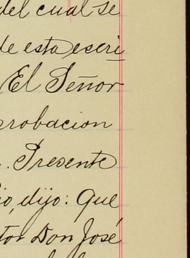 del cual se
de esta escri
El Señor
probacion
. Presente
io, dijo: Que
tor Don José